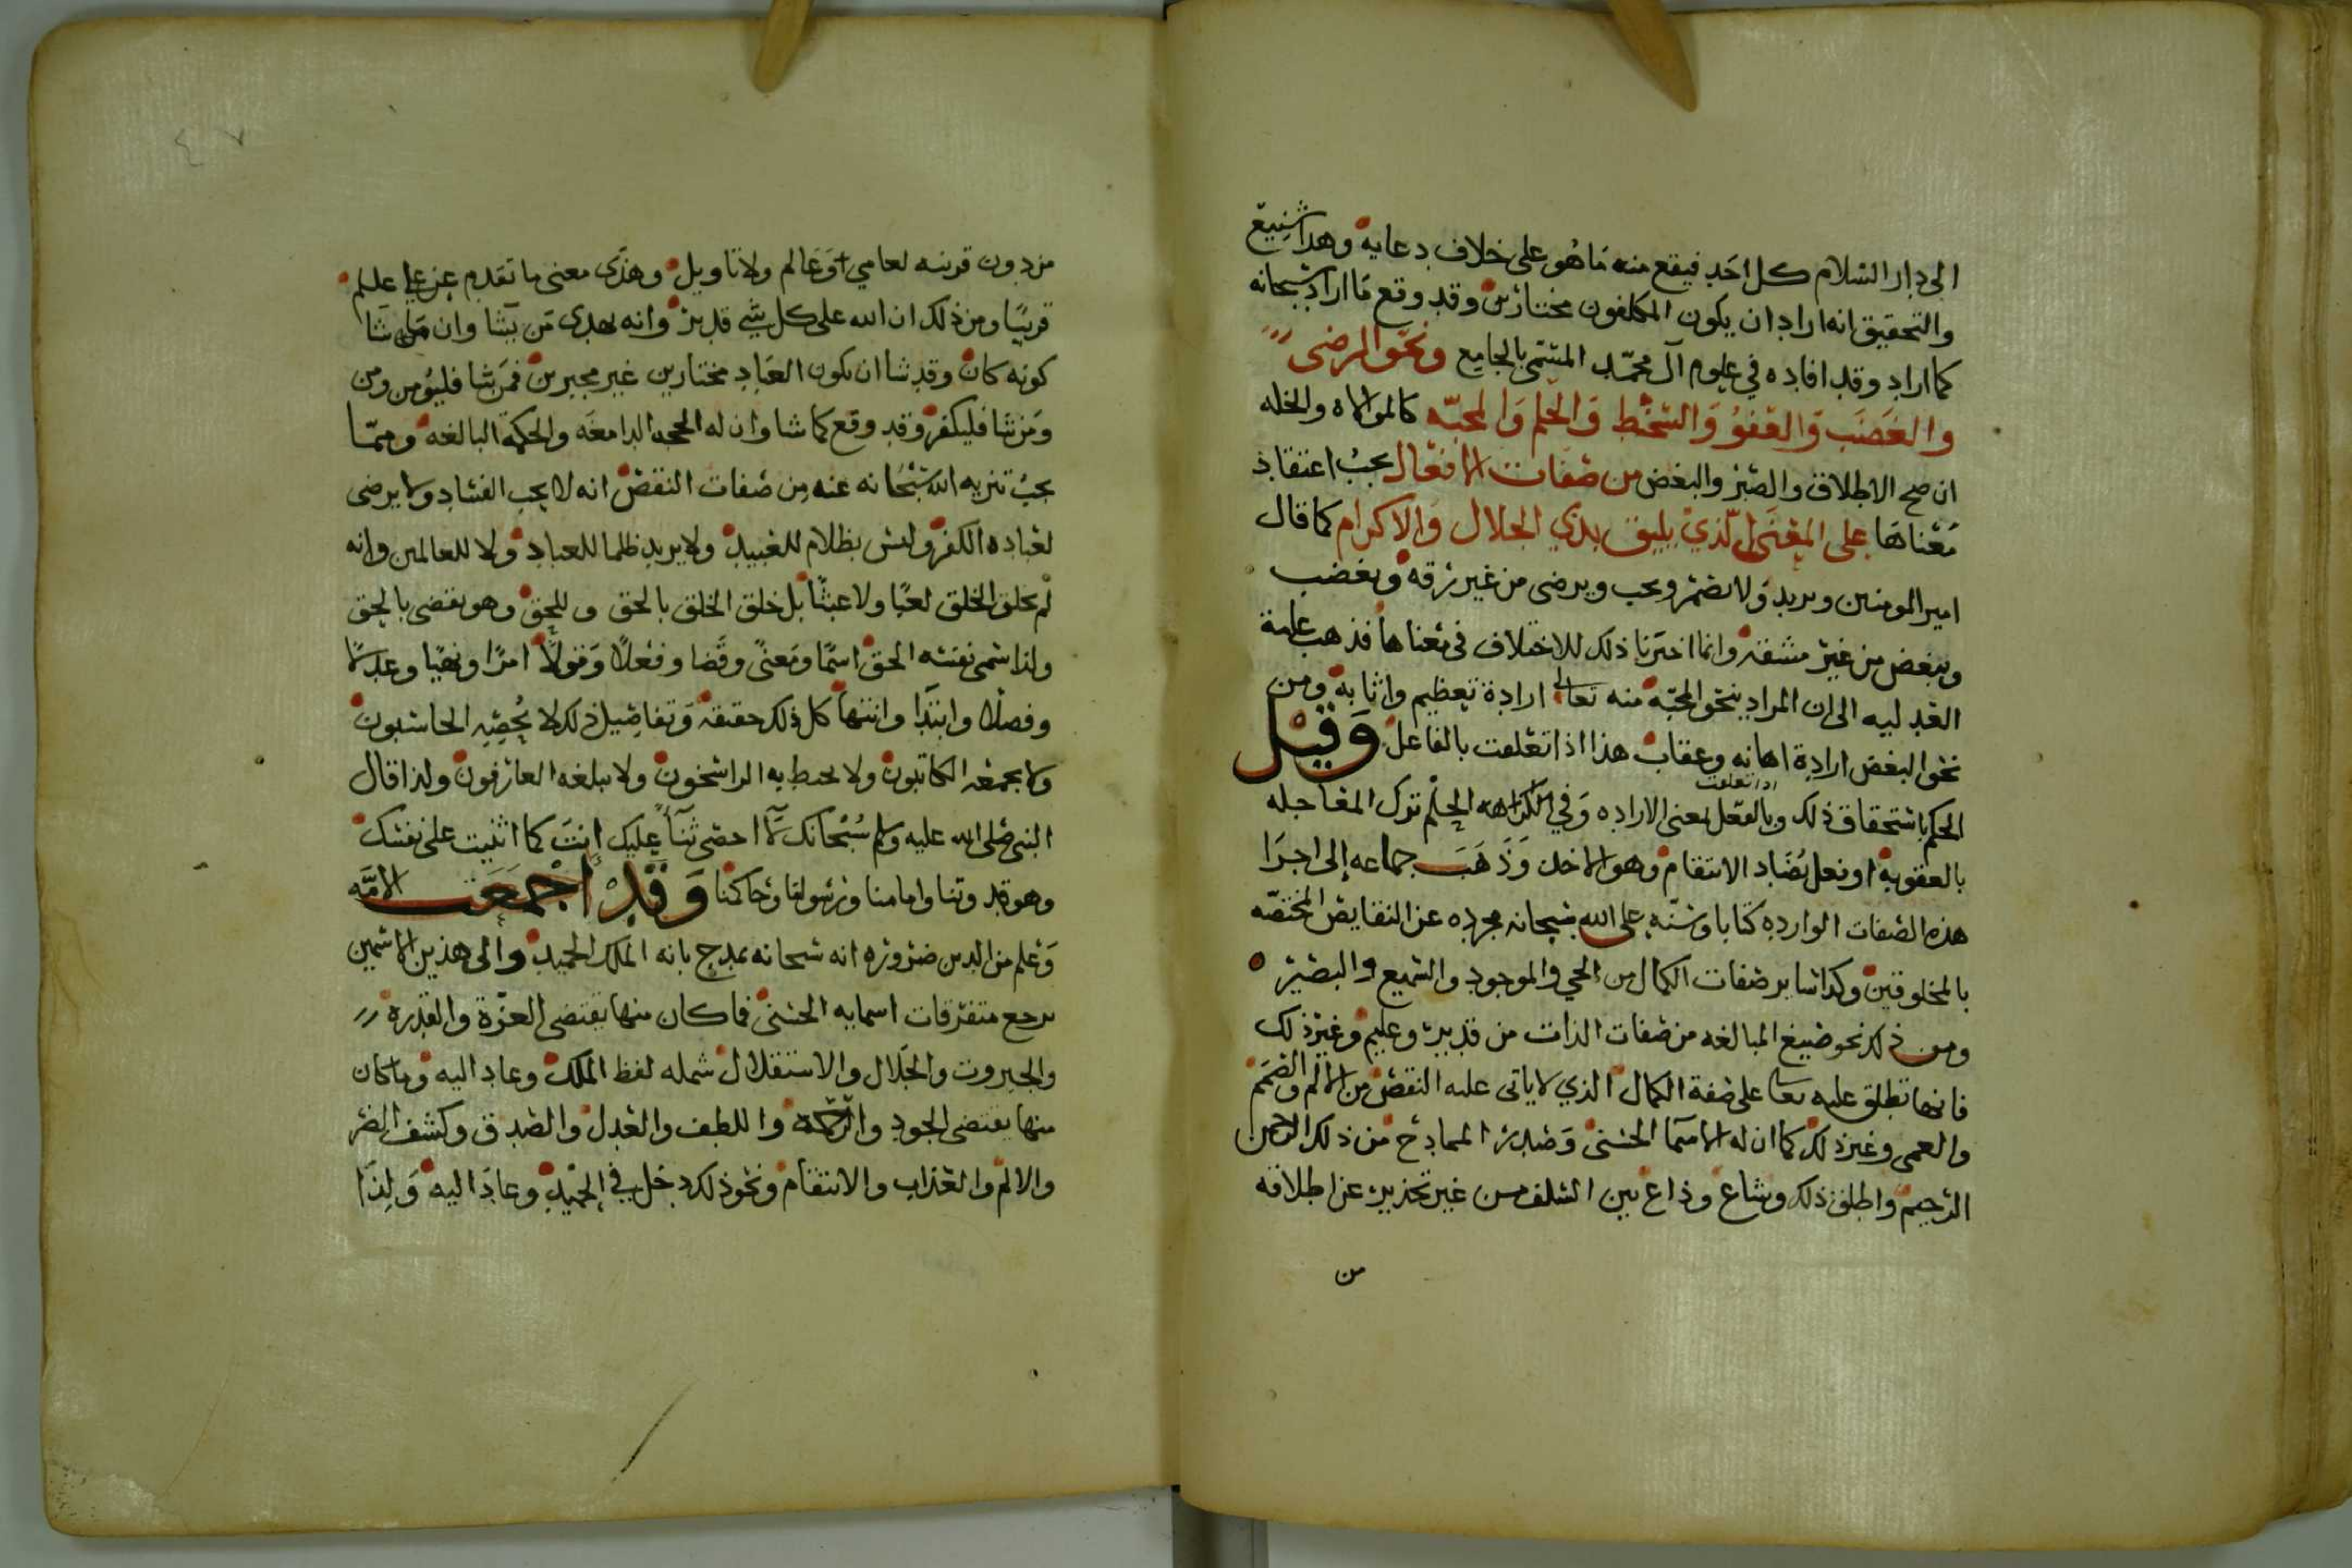 الى دار السلام كل احد فيقع منه ما هو على خلاف دعايه وهذا شنيع
والتحقيق انه اراد ان يكون المكلفون مختارين وقد وقع ما اراد سبحانه
كما اراد وقد افاده في علوم آل محمد المسمى بالجامع ونحو الرضى
والغضب والعفو والسخط والحلم والمحبه كالموالاه والخله
ان صح الاطلاق والصبر والبغض من صفات الافعال يجب اعتقاد
معناها على المعنى الذي يليق بذي الجلال والاكرام كما قال
امير المومنين ويريد ولا يضمر ويحب ويرضى من غير رقه ويغضب
ويبغض من غير مشقه وانما اخترنا ذلك للاختلاف في معناها فذهب
العدليه الى ان المراد بنحو المحبه منه تعالى ارادة تعظيم واثابه ومن
نحو البغض ارادة اهانه وعقاب هذا اذا تعلقت بالفاعل وقيل
الحكم باستحقاق ذلك وبالفعل بمعنى الاراده وفي الكراهه الحلم ترك المعاجله
بالعقوبه او فعل يضاد الانتقام وهو وذهب جماعه إلى اجرا
هذه الصفات الوارده كتابا وسنه على الله سبحانه مجرده عن النقايص المختصه
بالمخلوقين وكذا ساير صفات الكمال من الحي والموجود والسميع والبصير
ومن ذلك نحو صيغ المبالغه من صفات الذات من قدير وعليم وغير ذلك
فانها تطلق عليه تعا على صفة الكمال الذي لا ياتى عليه النقص من الالم والصمم
والعمى وغير ذلك كما ان له الاسما الحسنى وصدر الممادح من ذلك الرحمن
الرحيم واطلق ذلك وشاع وذاع بين السلف من غير تحذير عن اطلاقه
من
من دون قرينه لعامي او عالم ولا تاويل وهذى معنى ما تقدم عن علي علىلم
قريبا ومن ذلك ان الله على كل شي قدير وانه يهدى من يشا وان ما شا
كونه كان وقد شا ان يكون العباد مختارين غير مجبرين فمن شا فليؤمن ومن
ومن شا فليكفر وقد وقع كما شا وان له الحجه الدامغه والحكمه البالغه ومما
يجب تنزيه الله سبحانه عنه من صفات النقص انه لا يحب الفساد ولا يرضى
لعباده الكفر وليس بظلام للعبيد ولا يريد ظلما للعباد ولا للعالمين وانه
لم يخلق الخلق لعبا ولا عبثا بل خلق الخلق بالحق وللحق وهو يقضى بالحق
ولذا سمى نفسه الحق اسما ومعنى وقضا وفعلا وقولا امرا ونهيا وعدلا
وفصلا وابتدا وانتها كل ذلك حقيقه وتفاصيل ذلك لا يحصيه الحاسبون
ولا يجمعه الكاتبون ولا يحيط به الراسخون ولا يبلغه العارفون ولذا قال
النبي صلى الله عليه وسلم سبحانك لا احصي ثنآ عليك انت كما اثنيت على نفسك
وهو قدوتنا وامامنا ورسولنا وحاكمنا وقد أجمعت الامه
وعلم من الدين ضروره انه سبحانه يمدح بانه الملك الحميد والى هذين الاسمين
يرجع متفرقات اسمايه الحسنى فما كان منها يقتضي العزة والقدره
والجبروت والجلال والاستقلال شمله لفظ الملك وعاد اليه وما كان
منها يقتضى الجود والرحمه واللطف والعدل والصدق وكشف الضر
والالم والعذاب والانتقام ونحو ذلك دخل في الحميد وعاد اليه ولذا